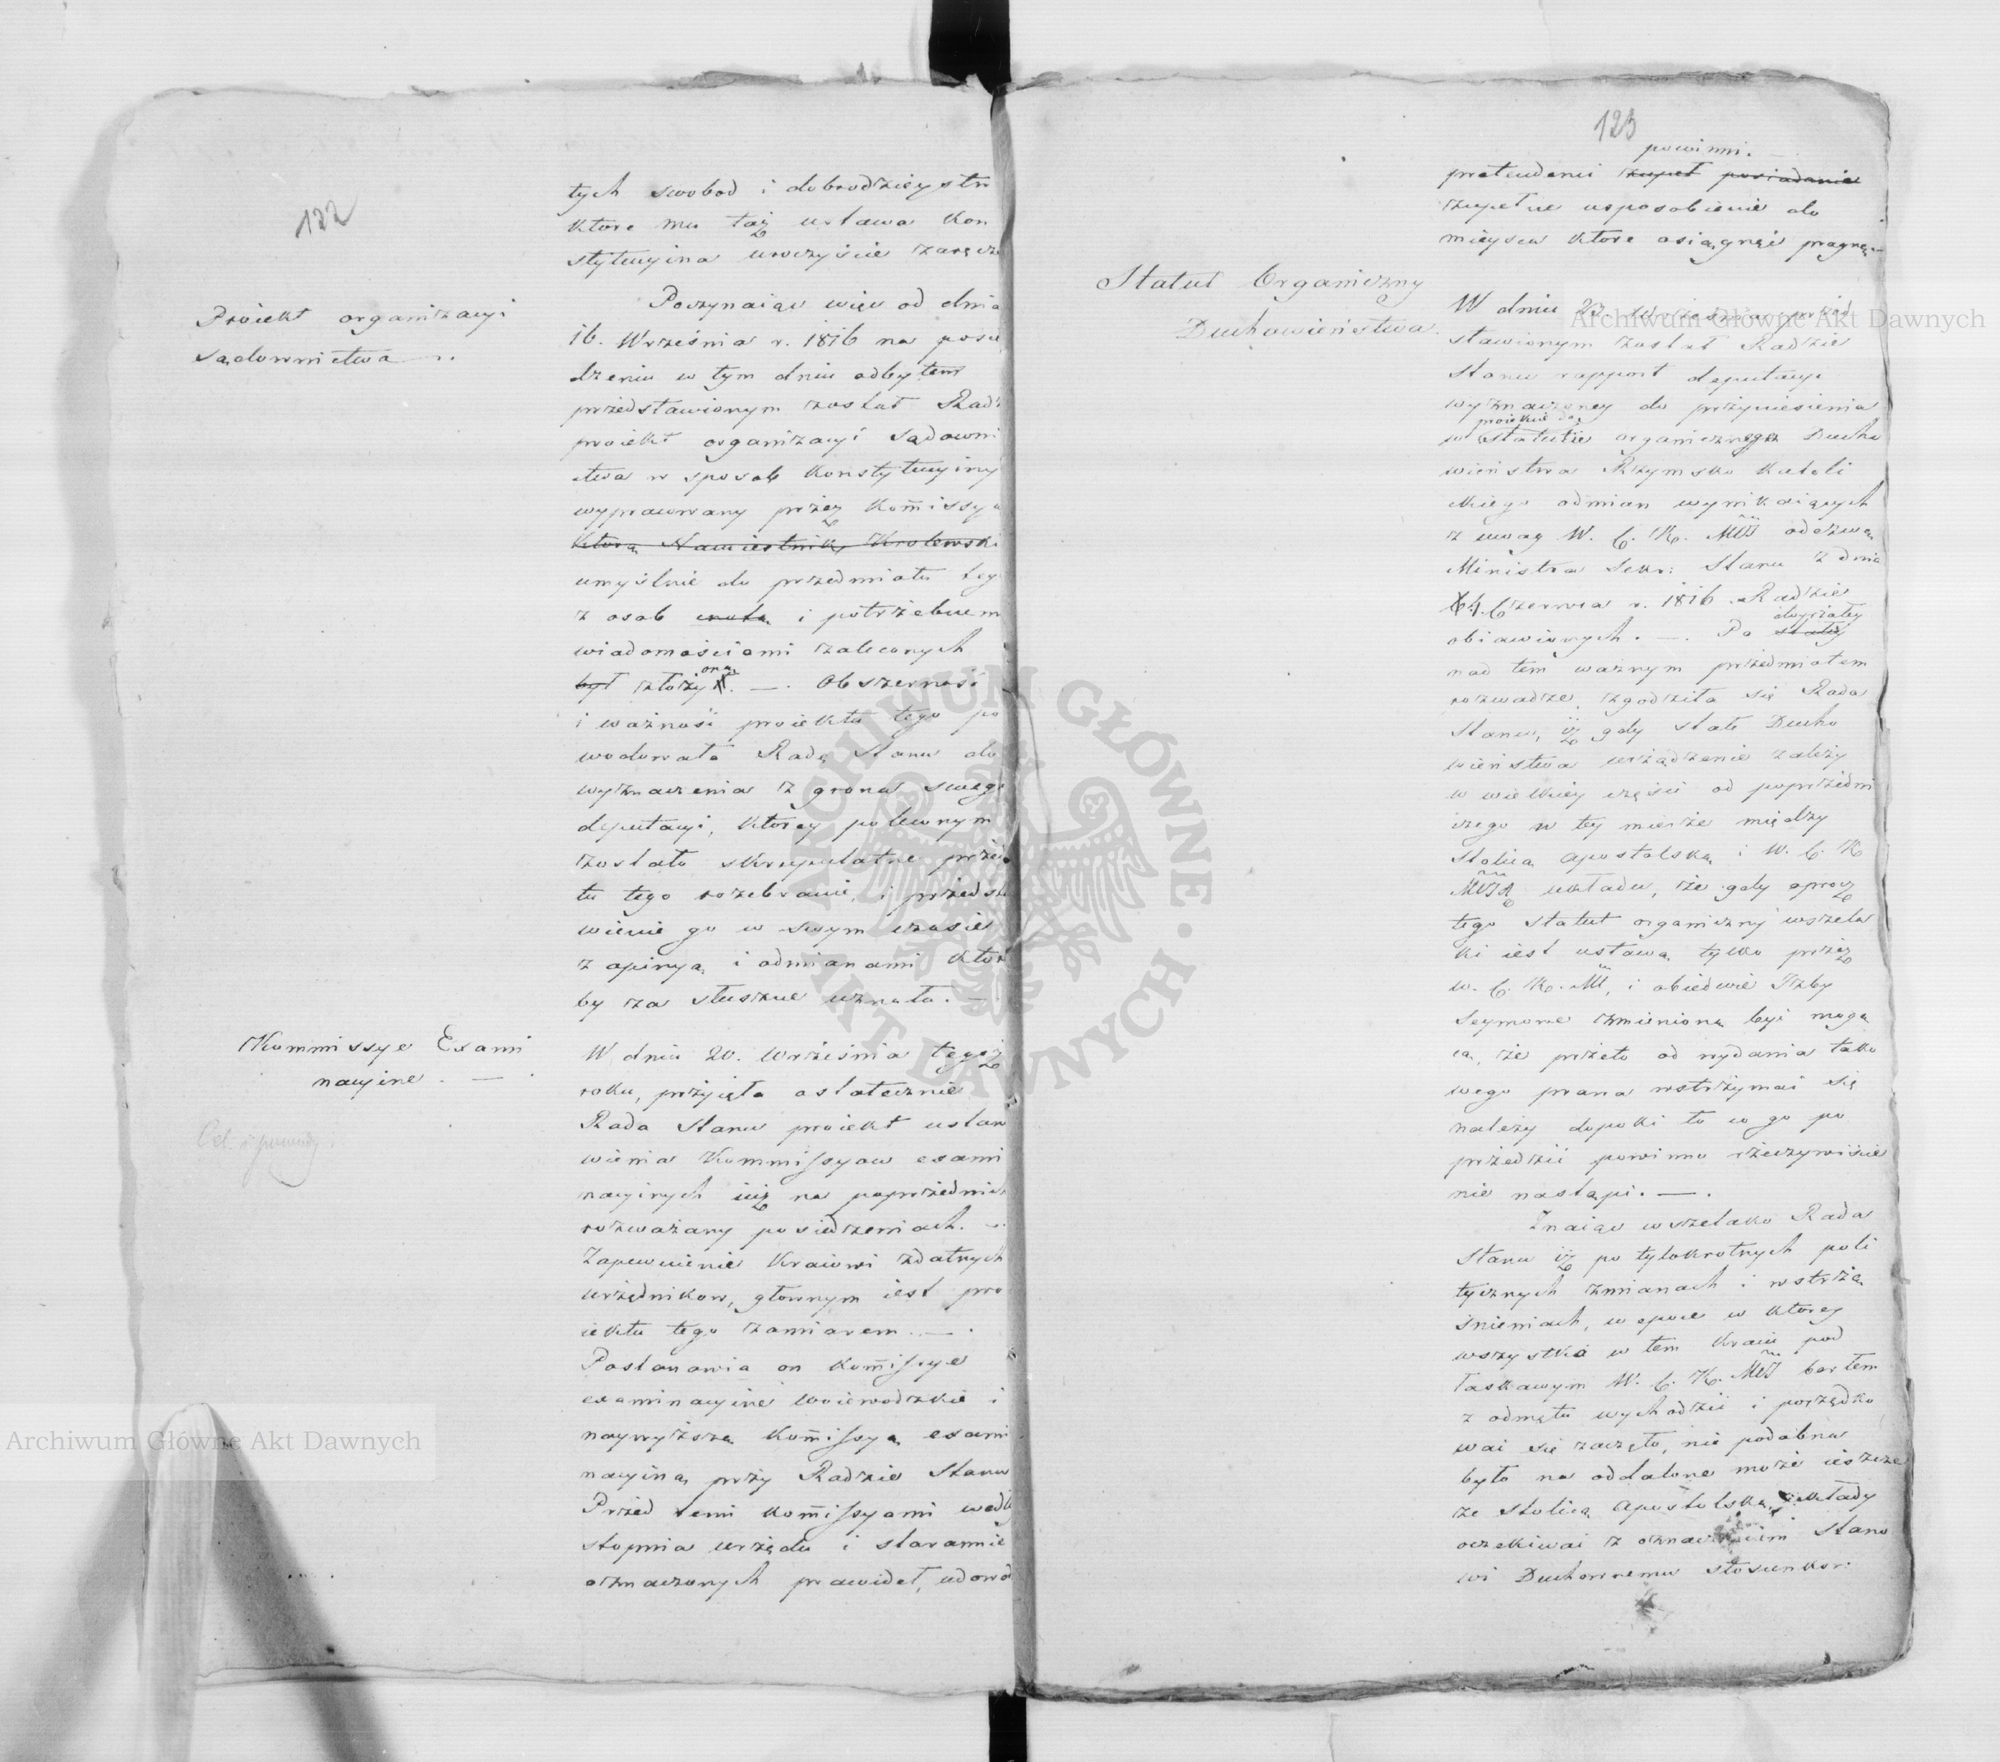 122
tych swobod i dobrodzieystw
ktore mu taż ustawa kon
stytucyina uroczyście zaręcza
Proiekt organizacyi
sądownictwa
Poczynaiąc więc od dnia
16. Września r. 1816 na posie
dzeniu w tym dniu odbytem
przedstawionym został Radz
proiekt organizacyi sądowni
ctwa w sposob konstytucyiny
wypracowany przez Kom̄issyą
ktorą Namiestnik Krolewski
umyślnie do przedmiotu teg
z osob i potrzebnem
wiadomościami zaleconych
był złożył. — Obszerność
oną
i ważność proiektu tego po
wodowała Radę Stanu do
wyznaczenia z grona swego
deputacyi, ktorey poleconym
zostało skrupulatne proie
ktu tego rozebranie, i przedsta
wienie go w swym czasie
z opinyą i odmianami ktor
by za słuszne uznała. —
Kommissye Exami
nacyine. —
W dniu 20. Września tegoż
roku, przyięła ostatecznie
Rada Stanu proiekt ustan
wienia Kommissyow exami
nacyinych iuż na poprzednich
rozważany posiedzeniach. —
Zapewnienie Kraiowi zdatnych
urzędnikow, głownym iest pro
iektu tego zamiarem. —
Postanawia on Kom̄issye
examinacyine woiewodzkie i
naywyższą Kom̄issyą exami
nacyiną przy Radzie Stanu
Przed temi kom̄issyami wedł
stopnia urzędu i starannie
oznaczonych prawideł, udowod
123
powinni. —
pretendenci zupeł posiadanie
zupełne usposobienie do
mieysca ktore osiągnąć pragną.
Statut Organiczny
Duchowieństwa.
W dniu Września przed
stawionym został Radzie
Stanu rapport deputacyi
wyznaczoney do przyniesienia
proiekcie do
w statutie organicznego Ducho
wieństwa Rzymsko Katoli
ckiego odmian wynikaiących
z uwag W. C. K. Mći odezwą
Ministra Sekr: Stanu z dnia
Czerwca r. 1816 Radzie
obiawionych. — Po stałey
doyrzałey
nad tem ważnym przedmiotem
rozwadze, zgodziła się Rada
Stanu, iż gdy stałe Ducho
wieństwa urządzenie zależy
w wielkiey części od poprzedni
czego w tey mierze między
Stolicą Apostolską i W. C. K
Mcią układu, że gdy oprocz
tego Statut organiczny wszela
ki iest ustawą tylko przez
W. C. K. M, i obiedwie Izby
Seymowe zmienioną być mogą
cą, że przeto od wydania tako
wego prawa wstrzymać się
należy dopoki to co go po
przedzić powinno rzeczywiście
nie nastąpi. —.
Znaiąc wszelako Rada
Stanu iż po tylokrotnych poli
tycznych zmianach i wstrzą
śnieniach, w epoce w ktorey
wszystko w tem kraiu pod
łaskawym W. C. K. Mći berłem
z odmętu wychodzić i porządko
wać się zaczęło, nie podobna
było na oddalone może ieszcze
ze Stolicą Apostolską układy
oczekiwać z oznaczeniem Stano
wi Duchownemu stosunkow:
ARCHIWUM GŁÓWNE · AKT DAWNYCH ·
Archiwum Główne Akt Dawnych
Archiwum Główne Akt Dawnych